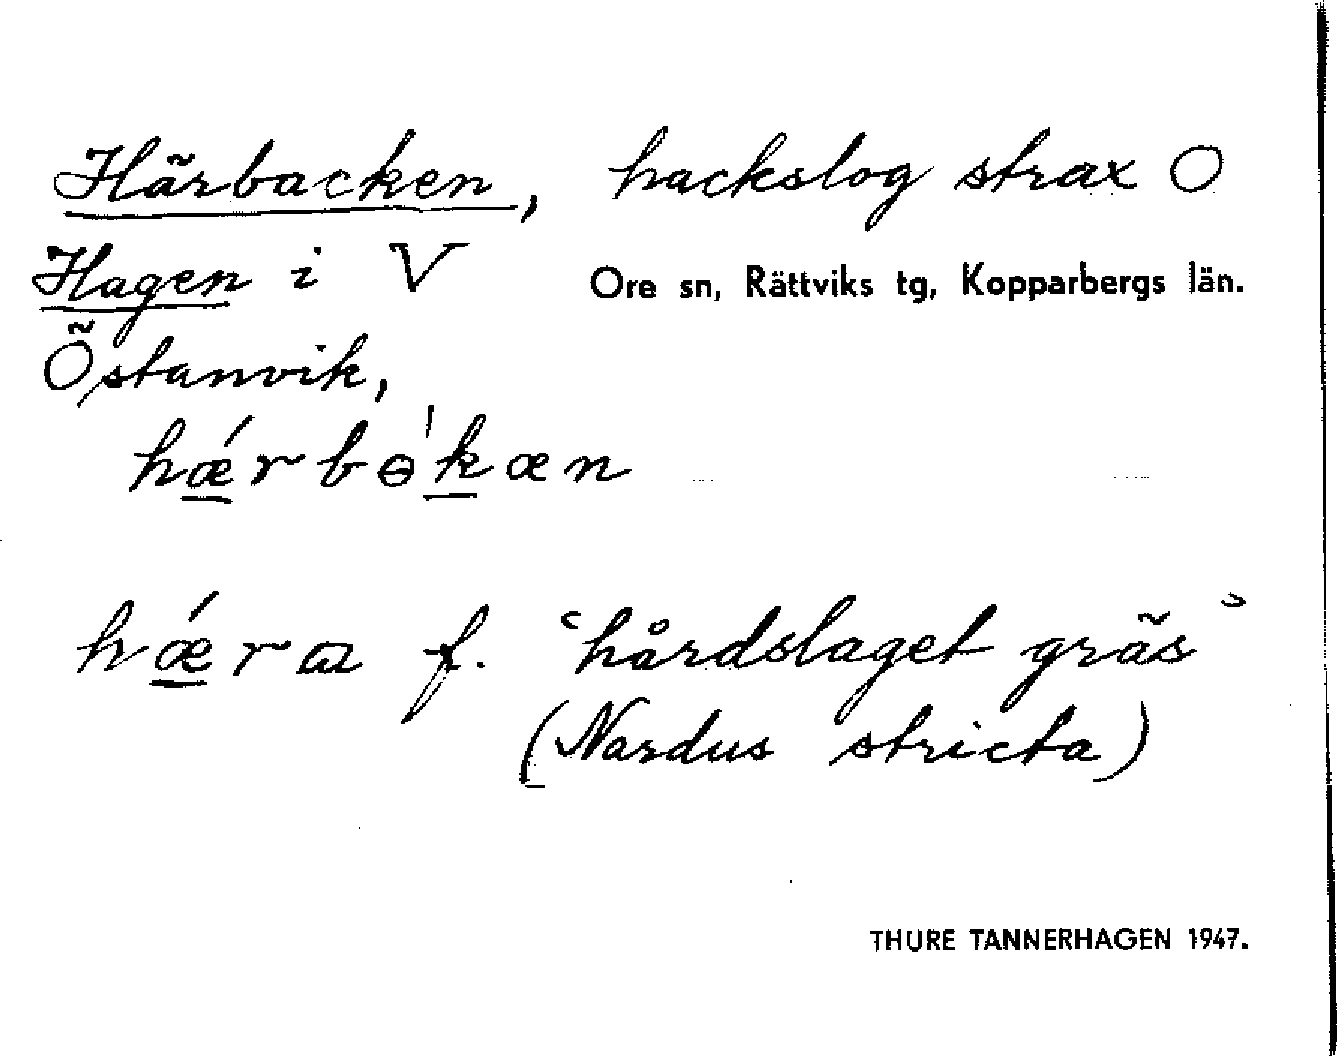 Härbacken, hackslog strax O
Hagen i V
Ore sn, Rättviks tg, Kopparbergs län.
Östanvik,
hǽrbɵ'kæn
hǽra f. ‘hårdslaget gräs’
(Nardus stricta)
THURE TANNERHAGEN 1947.